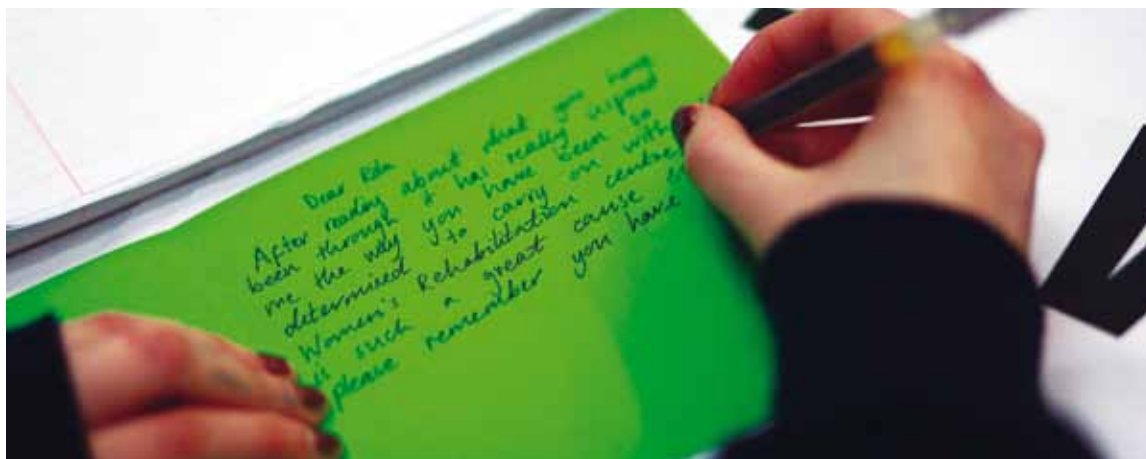 Dear Rita
After reading about what you have
been through has really inspired
me the way you have been so
determined to carry on with
Women's Rehabilitation centre
is such a great cause
please remember you have